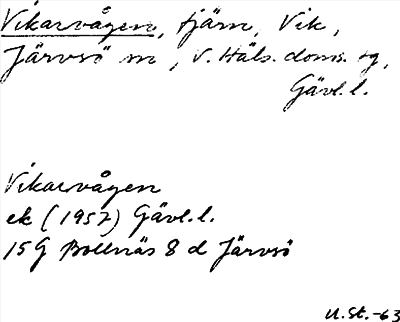 Vikarvågen, tjärn, Vik,
Järvsö sn, V. Häls. doms. sg,
Gävl. l.
Vikarvågen
ek (1957) Gävl. l.
15G Bollnäs 8 d Järvsö
U.St.-63